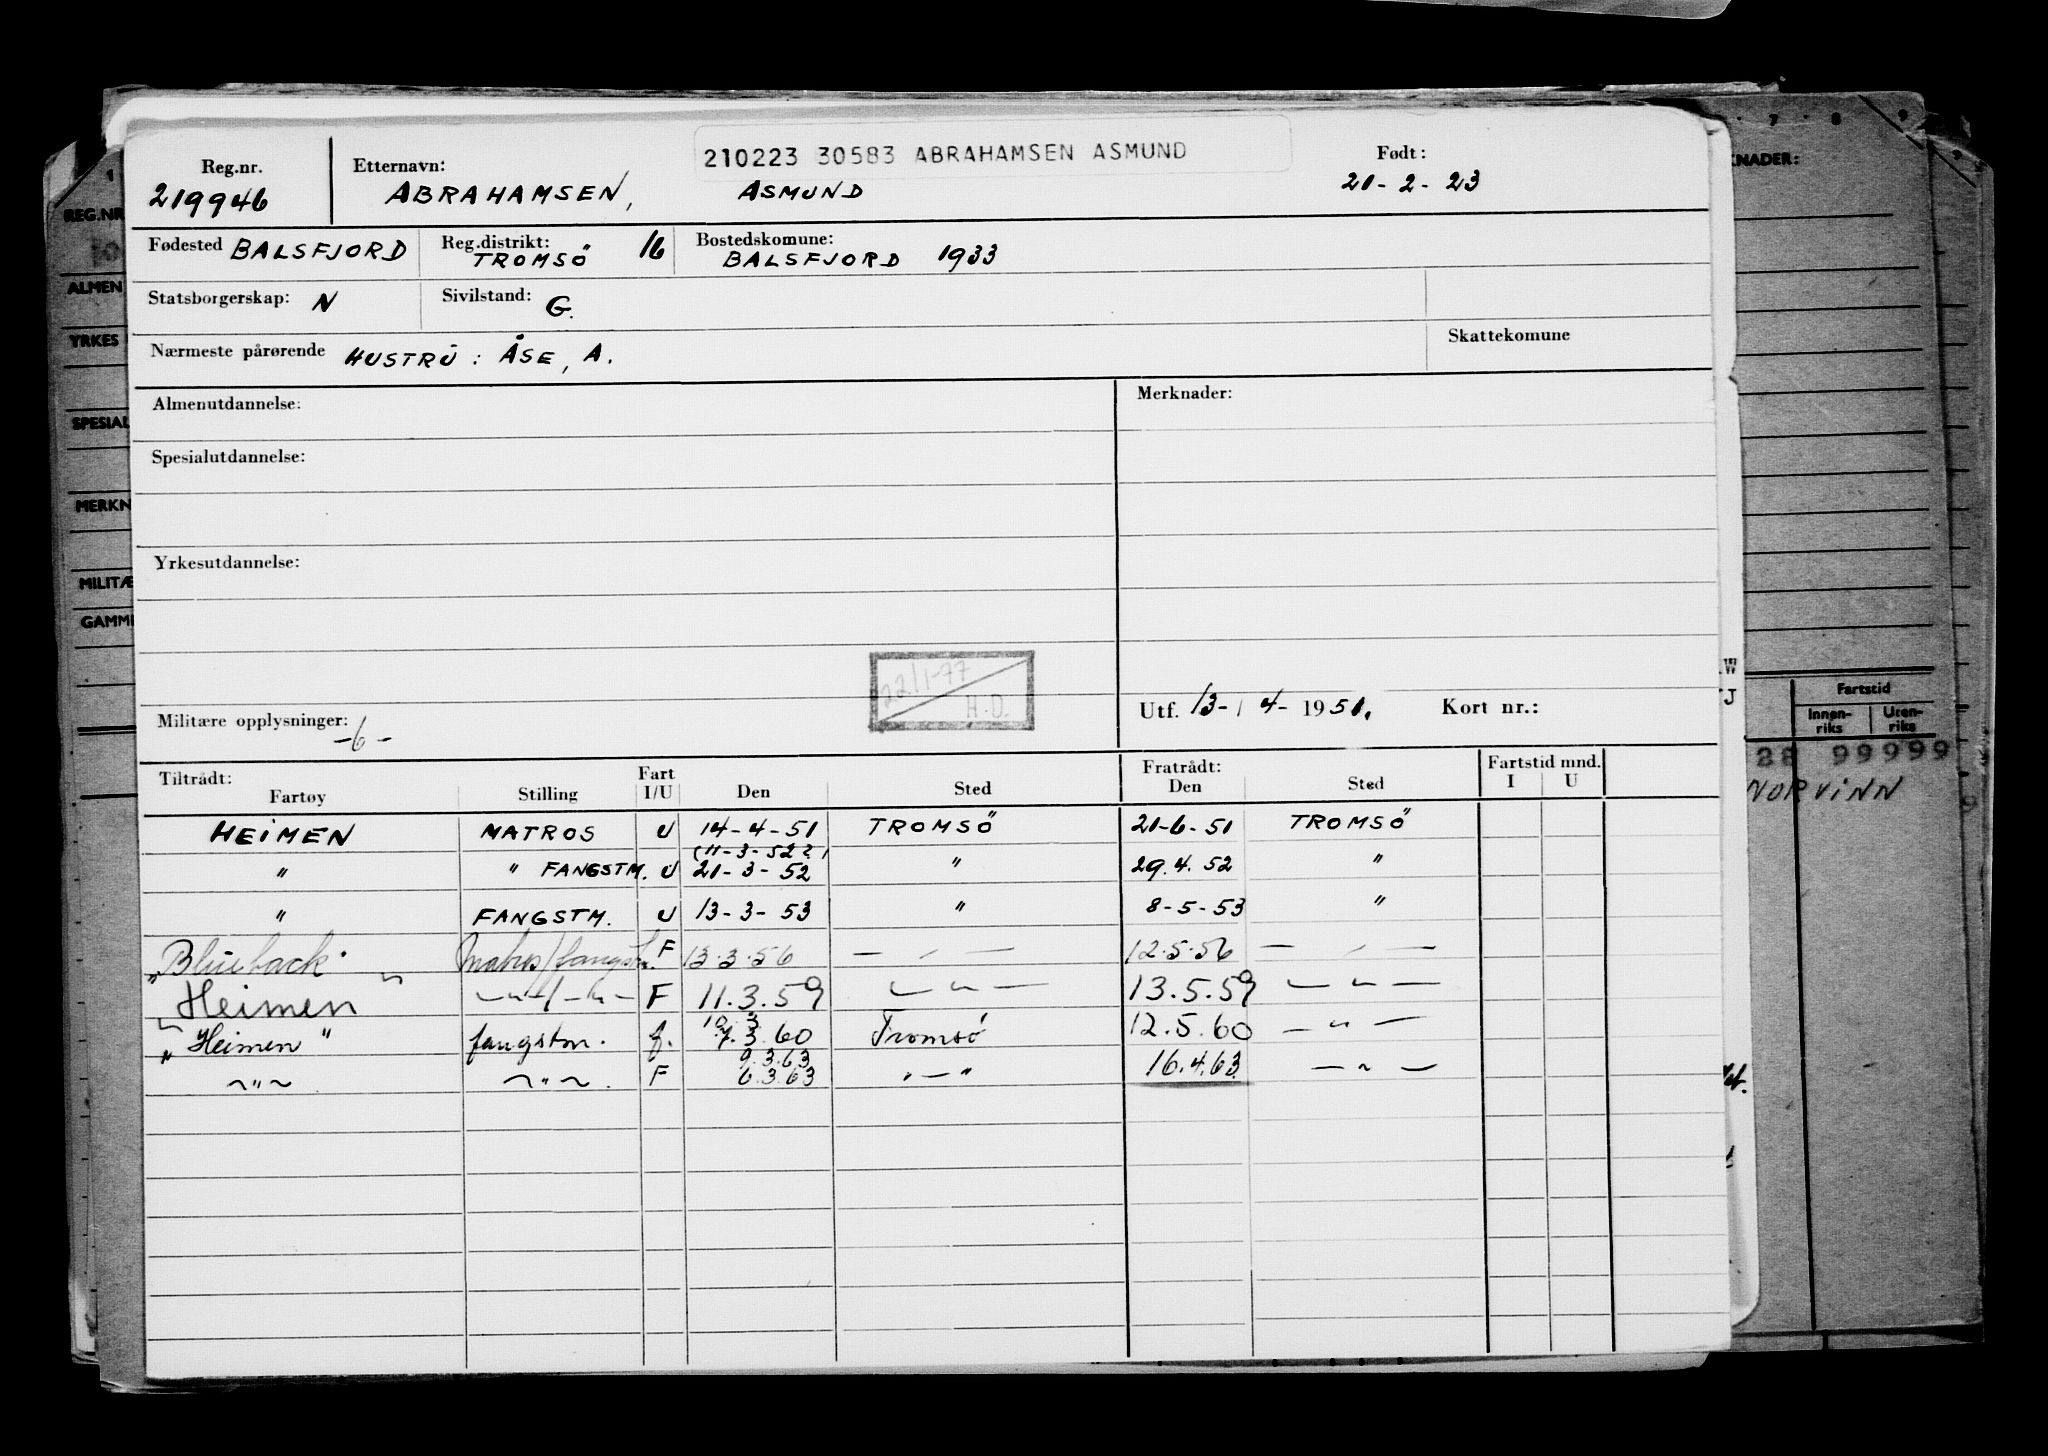 210223 30583 ABRAHAMSEN ASMUND
Reg.nr. Etternavn: Født:
219946 ABRAHAMSEN, ASMUND 21-2-23
Fødested BALSFJORD Reg.distrikt: TROMSÖ 16 Bostedskomune: BALSFJORD 1933
Statsborgerskap: N Sivilstand: G.
Nærmeste pårørende HUSTRU: ÅSE, A. Skattekomune
Almenutdannelse: Merknader:
Spesialutdannelse:
Yrkesutdannelse:
22/1-77
H.D.
Militære opplysninger: -6- Utf. 13-4-1951. Kort nr.:
Tiltrådt: Fart Fratrådt: Fartstid mnd.
Fartøy Stilling I/U Den Sted Den Sted I U
HEIMEN MATROS U 14-4-51 TROMSÖ 21-6-51 TROMSÖ
(11-3-52?)
" " FANGSTM. U 21-3-52 " 29.4.52 "
" FANGSTM. U 13-3-53 " 8-5-53 "
"Blueback" Matros/fangstm. F 13.3.56 — " — 12.5.56 — " —
"Heimen" — " — / — " — F 11.3.59 — " — 13.5.59 — " —
10.3.
"Heimen" fangstm. f. 7.3.60 Tromsö 12.5.60 — " —
9.3.63
~ " ~ ~ " ~. F 6.3.63 " — " 16.4.63 — " —
REG.NR
ALMEN
YRKES
SPESIAL
MERKN
MILITÆ
GAMM
7 8 9
KNADER:
W
J
Fartstid
Innen-riks Uten-riks
88 99999
NORVINN